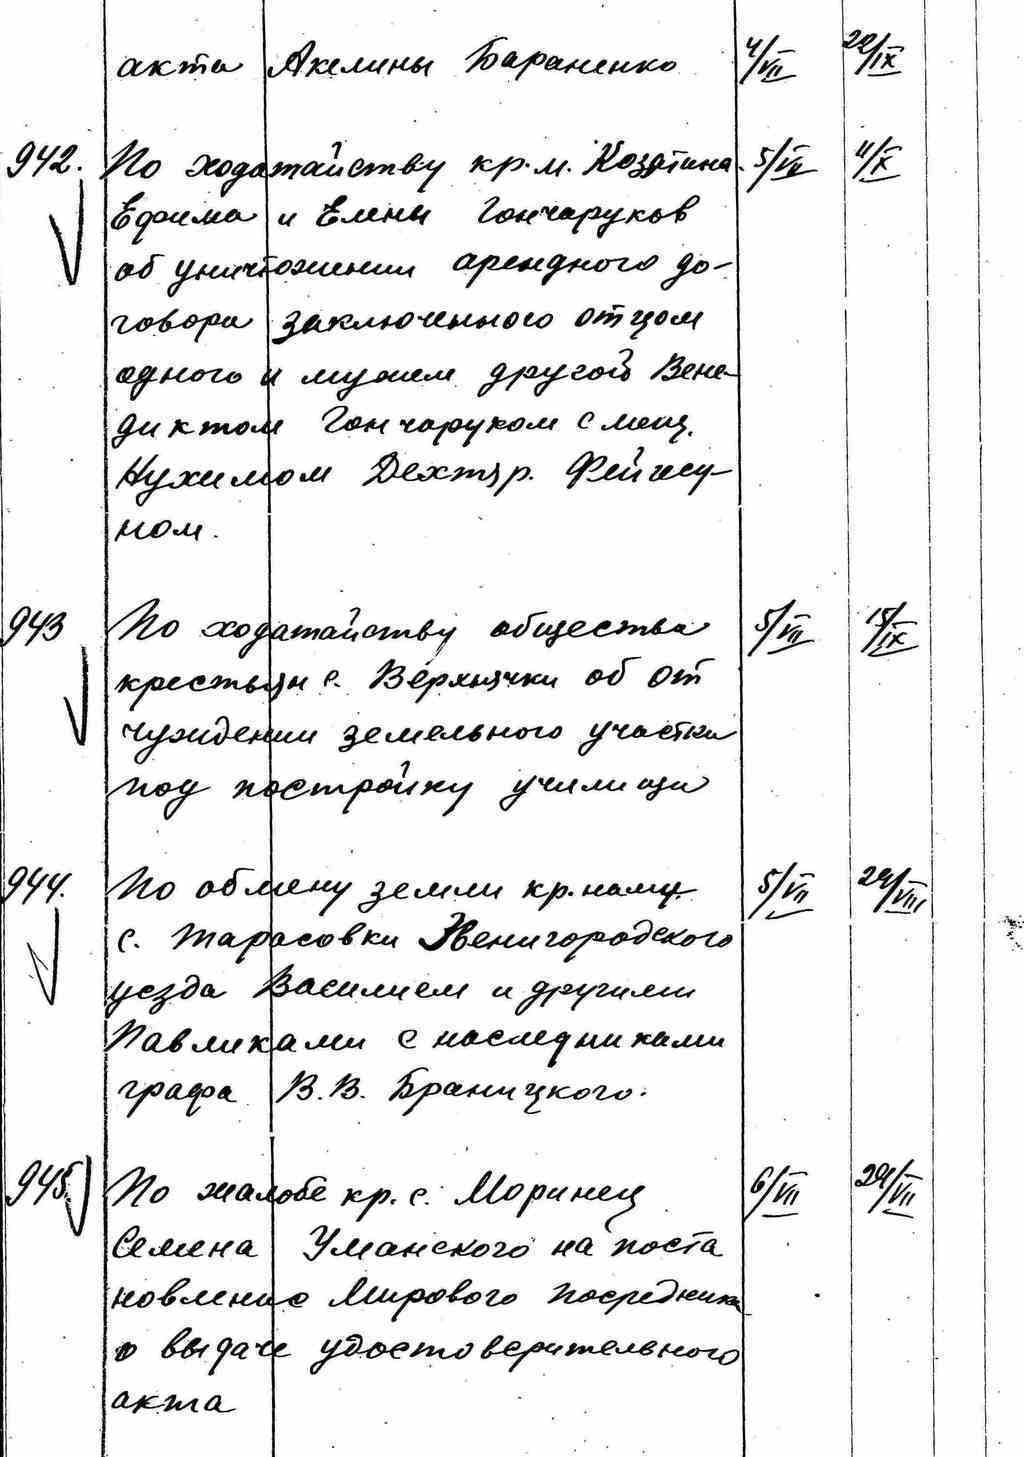 акта Акелины Бараненко 4/VII 22/IX
942. По ходатайству кр. м. Козятина 5/VII 11/X
Ефима и Елены Гончаруков
об уничтожении арендного до-
говора заключенного отцом
одного и мужем другой Вене-
диктом Гончаруком с мещ.
Нухимом Дехтяр.
ном.
943 По ходатайству общества 5/VII 15/IX
крестьян с. Верхнячки об от
чуждении земельного участка
под постройку училища
944. По обмену земли кр.нами 5/VII 29/VIII
с. Тарасовки Звенигородского
уезда Василием и другими
Павликами с наследниками
графа В.В. Браницкого.
945. По жалобе кр. с. Моринец 6/VII 29/VII
Семена Уманского на поста
новление Мирового Посредника
о выдаче удостоверительного
акта